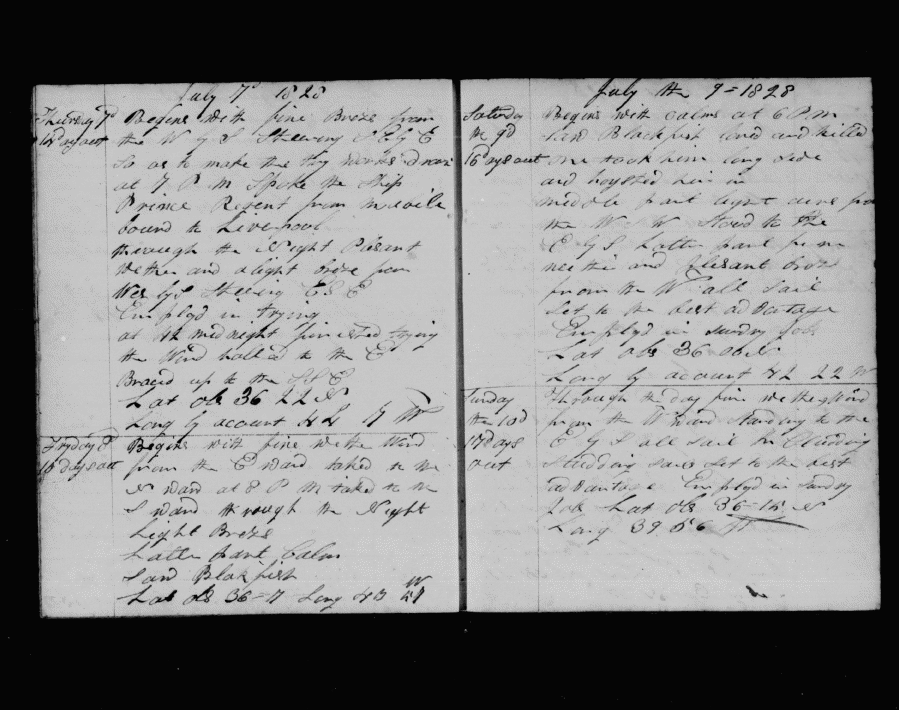 July 7d 1828
Thursdy 7d Begins with fine Breze from
the W by S Steering E by E
So as to make the try works draw
at 7 P M Spoke the Ship
Prince Regent from
bound to Liverpool
through the Night Plesent
wether and a light breze from
Wes by S Steering E S E
Employd in trying
at 4h midnight finished trying
the Wind halled to the E
Braced up to the S S E
Lat ob 36 22 N
Long by acount 44 17 W
Fryday 8d Begins with fine wether Wind
days out from the E ward taked to the
N ward at 8 P M taked to the
S ward through the Night
Light Breze
Latter part Calm
Saw Blakfish
Lat ob 36=17 Long 43 W
July the 9=1828
Saturday Begins with Calms at 6 P M
the 9d Saw Blackfish and killed
16 days out one took him long side
and hoysted him in
middle part light airs from
the W N W Steerd to the
E by S Latter part fine
wether and Plesant breze
from the W all sail
Set to the best advantage
Employd in sunday jobs
Lat obs 36 06 N
Long by acount 42 22 W
Sunday Through the day fine wether Wind
the 10d from the W ward standing to the
17 Days E by S all sail Steering
out Studding sails Set to the best
advantage Employd in Sunday
Jobs Lat ob 36=15 N
Long 39 56 W